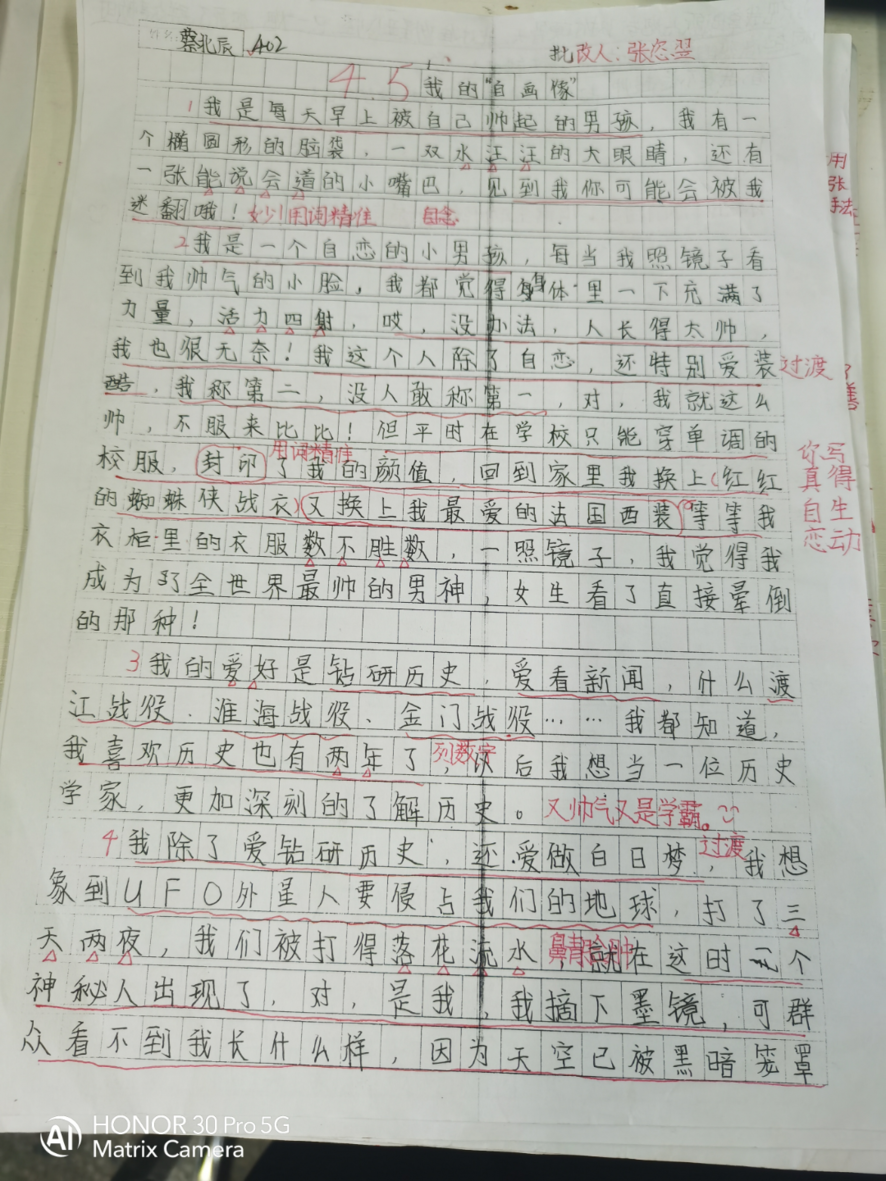 蔡北辰 402
批改人:张恣翌
45 我的“自画像”
1 我是每天早上被自己帅起的男孩,我有一
个椭圆形的脑袋,一双水汪汪的大眼睛,还有
一张能说会道的小嘴巴,见到我你可能会被我
迷翻哦!妙!用词精准 自恋
2 我是一个自恋的小男孩,每当我照镜子看
到我帅气的小脸,我都觉得身体里一下充满了
力量,活力四射,哎,没办法,人长得太帅,
我也很无奈!我这个人除了自恋,还特别爱装 过渡
酷,我称第二,没人敢称第一,对,我就这么
帅,不服来比比!但平时在学校只能穿单调的
用词精准
校服,封印了我的颜值,回到家里我换上(红红
的蜘蛛侠战衣)(又换上我最爱的法国西装)等等我
衣柜里的衣服数不胜数,一照镜子,我觉得我
成为了全世界最帅的男神,女生看了直接晕倒
的那种!
你写
真得
自生
恋动
3 我的爱好是钻研历史,爱看新闻,什么渡
江战役、淮海战役、金门战役……我都知道,
我喜欢历史也有两年了,以后我想当一位历史
列数字
学家,更加深刻的了解历史。又帅气又是学霸。
4 我除了爱钻研历史,还爱做白日梦,我想
过渡
象到UFO外星人要侵占我们的地球,打了三
天两夜,我们被打得落花流水 就在这时一个
神秘人出现了,对,是我,我摘下墨镜,可群
众看不到我长什么样,因为天空已被黑暗笼罩
用
张
手法
HONOR 30 Pro 5G
Matrix Camera
AI